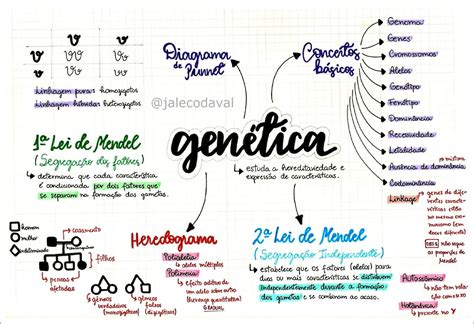 Diagrama
de Punnet
Linhagem pura: homozigotos
Linhagem híbrida: heterozigotos
Conceitos
básicos
Genoma
Genes
Cromossomos
Alelos
Genótipo
Fenótipo
Dominância
Recessividade
Letalidade
Ausência de dominância
mistura
Codominância
Linkage
genes de dife-
rentes carac-
terísticas estão
no mesmo cro-
mossomo
não segue
as proporções
de Mendel
@jalecodaval
genética
estuda a hereditariedade e
expressão de características.
1ª Lei de Mendel
(Segregação dos fatores)
determina que cada característica
é condicionada por dois fatores que
se separam na formação dos gametas.
2ª Lei de Mendel
(Segregação Independente)
estabelece que os fatores (alelos) para
duas ou mais características se distribuem
independentemente durante a formação
dos gametas e se combinam ao acaso.
Heredograma
Polialelia
alelos múltiplos
Polimeria
Efeito aditivo de
um alelo sobre outro
(herança quantitativa)
homem
mulher
indeterminado
casamento
filhos
pessoas
afetadas
gêmeos
univitelinos
(monozigóticos)
gêmeos
bivitelinos
(dizigóticos)
Autossômica
Holândrica
presente no Y